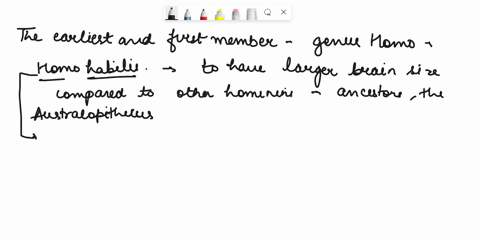 The earliest and first member - genus Homo -
Homo habilis. → to have larger brain size
compared to other hominins - ancestors, the
Australopithecus